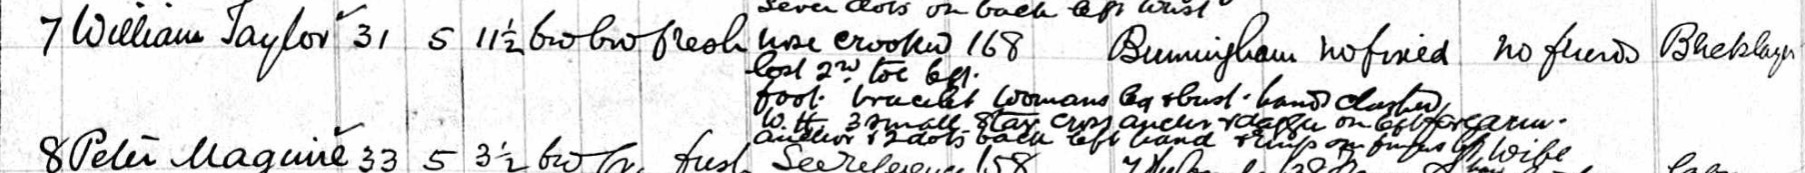 seven dots on back left wrist
7 William Taylor 31 5 11½ bro bro fresh nose crooked 168 Birmingham no fixed no friends Bricklayer
lost 2nd toe left
foot. bracelet womans leg & bust. hands clasped
with 3 small star cross anchor & dagger on left forearm.
anchor & 2 dots back left hand & rings on
8 Peter Maguire 33 5 3½ bro fresh See reference 158 Wife